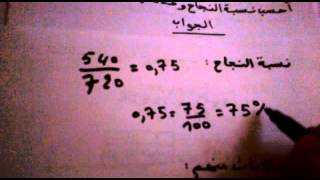 أحسب نسبة النجاح و
الجواب
نسبة النجاح : 540/720 = 0,75
0,75 = 75/100 = 75%